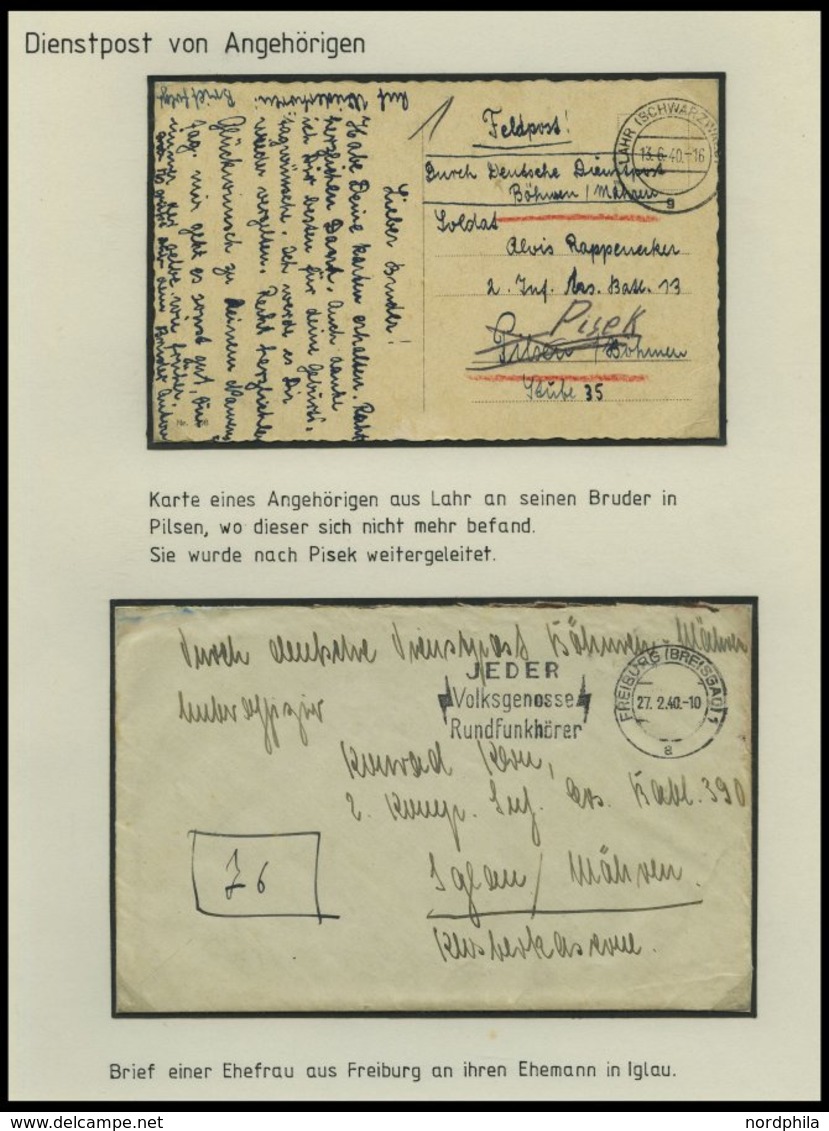 Dienstpost von Angehörigen
Brief folgt
Auf Wiederhören!
Lieber Bruder!
Habe Deine Karten erhalten. Recht
herzlichen Dank. Auch danke
ich Dir bestens für deine Geburts-
tagwünsche. Ich werde es Dir
wieder vergelten. Recht herzlichen
Glückwunsch zu Deinem Namens-
tag. Mir geht es sonst gut,
immer
wie früher.
Nr.
Feldpost!
Durch Deutsche Dienstpost
Böhmen / Mähren
LAHR (SCHWARZWALD)
13.6.40.-16
g
Soldat
Alois Rappenecker
2. Inf. Ers. Batl. 13
Pisek
Pilsen / Böhmen
Stube 35
Karte eines Angehörigen aus Lahr an seinen Bruder in
Pilsen, wo dieser sich nicht mehr befand.
Sie wurde nach Pisek weitergeleitet.
Durch deutsche Dienstpost Böhmen-Mähren
JEDER
Volksgenosse
Rundfunkhörer
FREIBURG (BREISGAU) 1
27. 2.40.-10
a
Unteroffizier
Konrad
2. Komp. Inf. Ers. Batl. 390
Iglau / Mähren.
J6
Brief einer Ehefrau aus Freiburg an ihren Ehemann in Iglau.
www.delcampe.net
nordphila